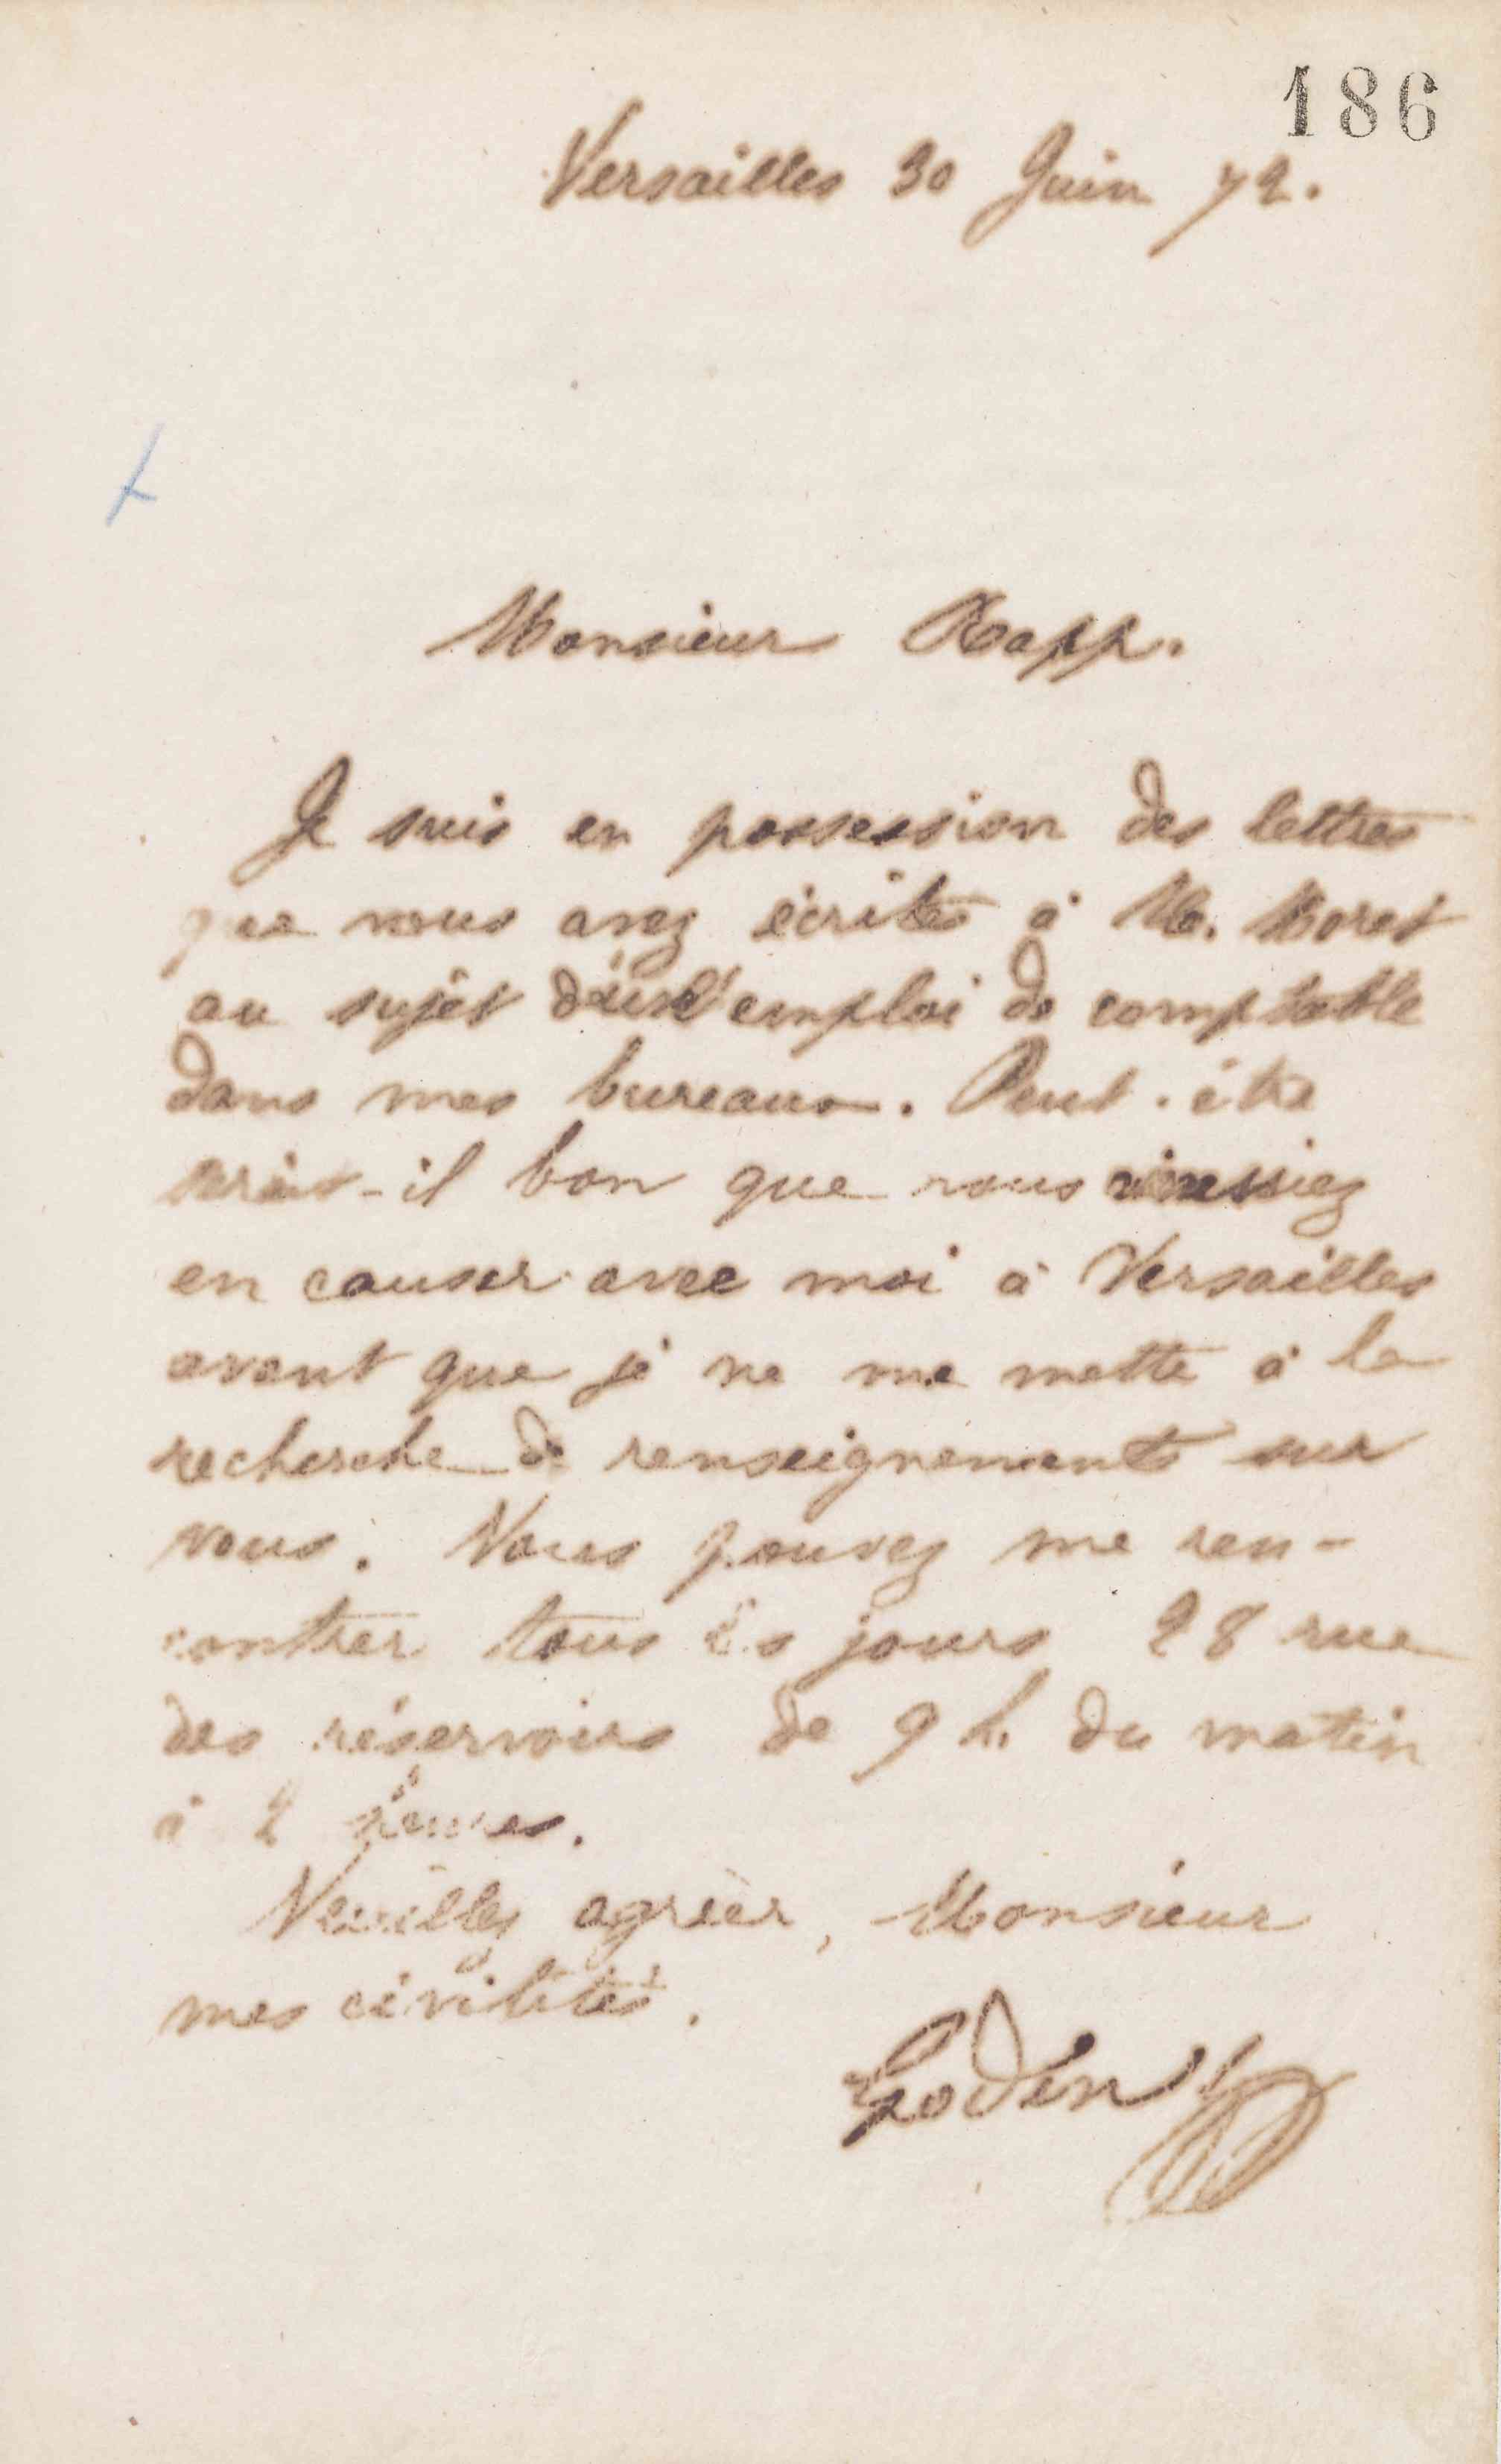 186
Versailles 30 Juin 72.
Monsieur Rapp.
Je suis en possession des lettres
que vous avez écrites à M. Moret
au sujet d'un emploi de comptable
dans mes bureaux. Peut-être
serait-il bon que vous vinssiez
en causer avec moi à Versailles
avant que je ne me mette à la
recherche de renseignements sur
vous. Vous pouvez me ren-
contrer tous les jours 28 rue
des réservoirs de 9 h. du matin
à 2 heures.
Veuillez agréer, Monsieur
mes civilités.
Godin